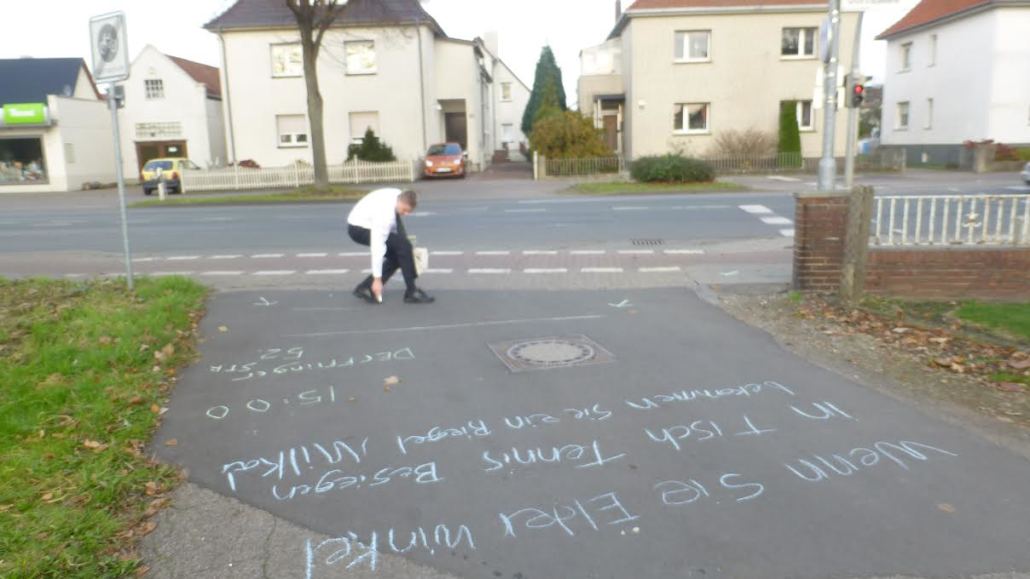 Wenn Sie Elder Winkel
in Tisch Tennis Besiegen
bekommen Sie ein Riegel Milka!
15:00
Derffringer
52 Str